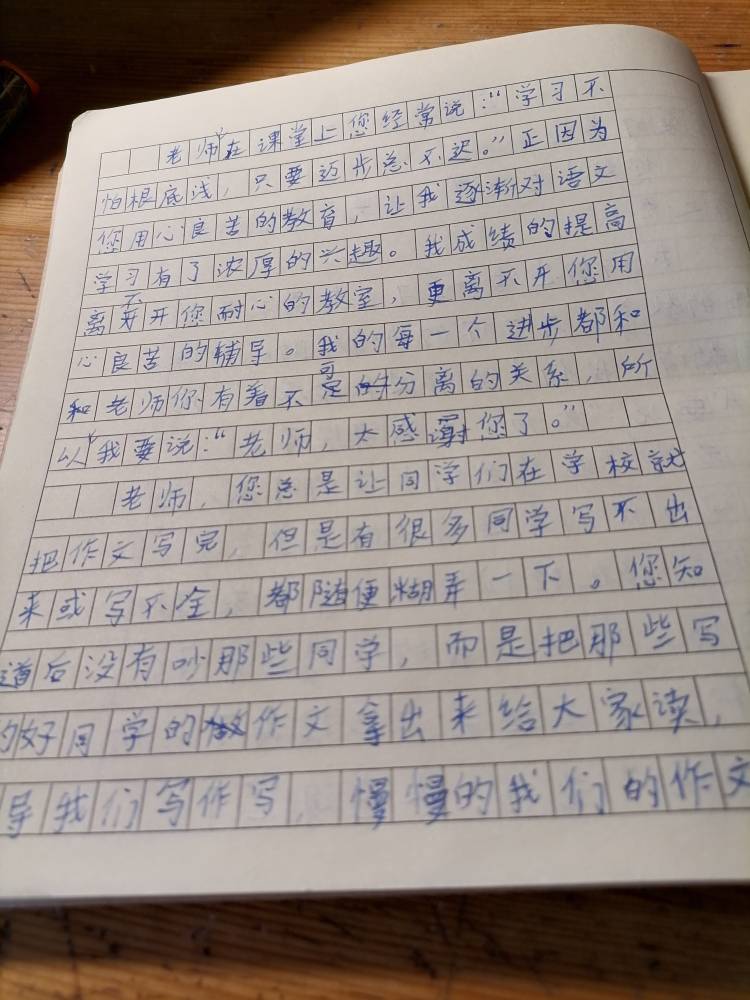 老师，在课堂上您经常说：“学习不
怕根底浅，只要迈步总不迟。”正因为
您用心良苦的教育，让我逐渐对语文
学习有了浓厚的兴趣。我成绩的提高
离不开您耐心的教室，更离不开您用
心良苦的辅导。我的每一个进步都和
和老师你有着不可分离的关系，所
以，我要说：“老师，太感谢您了。”
老师，您总是让同学们在学校就
把作文写完，但是有很多同学写不出
来或写不全，都随便糊弄一下。您知
道后没有吵那些同学，而是把那些写
的好同学的作文拿出来给大家读，
导我们写作写，慢慢的我们的作文